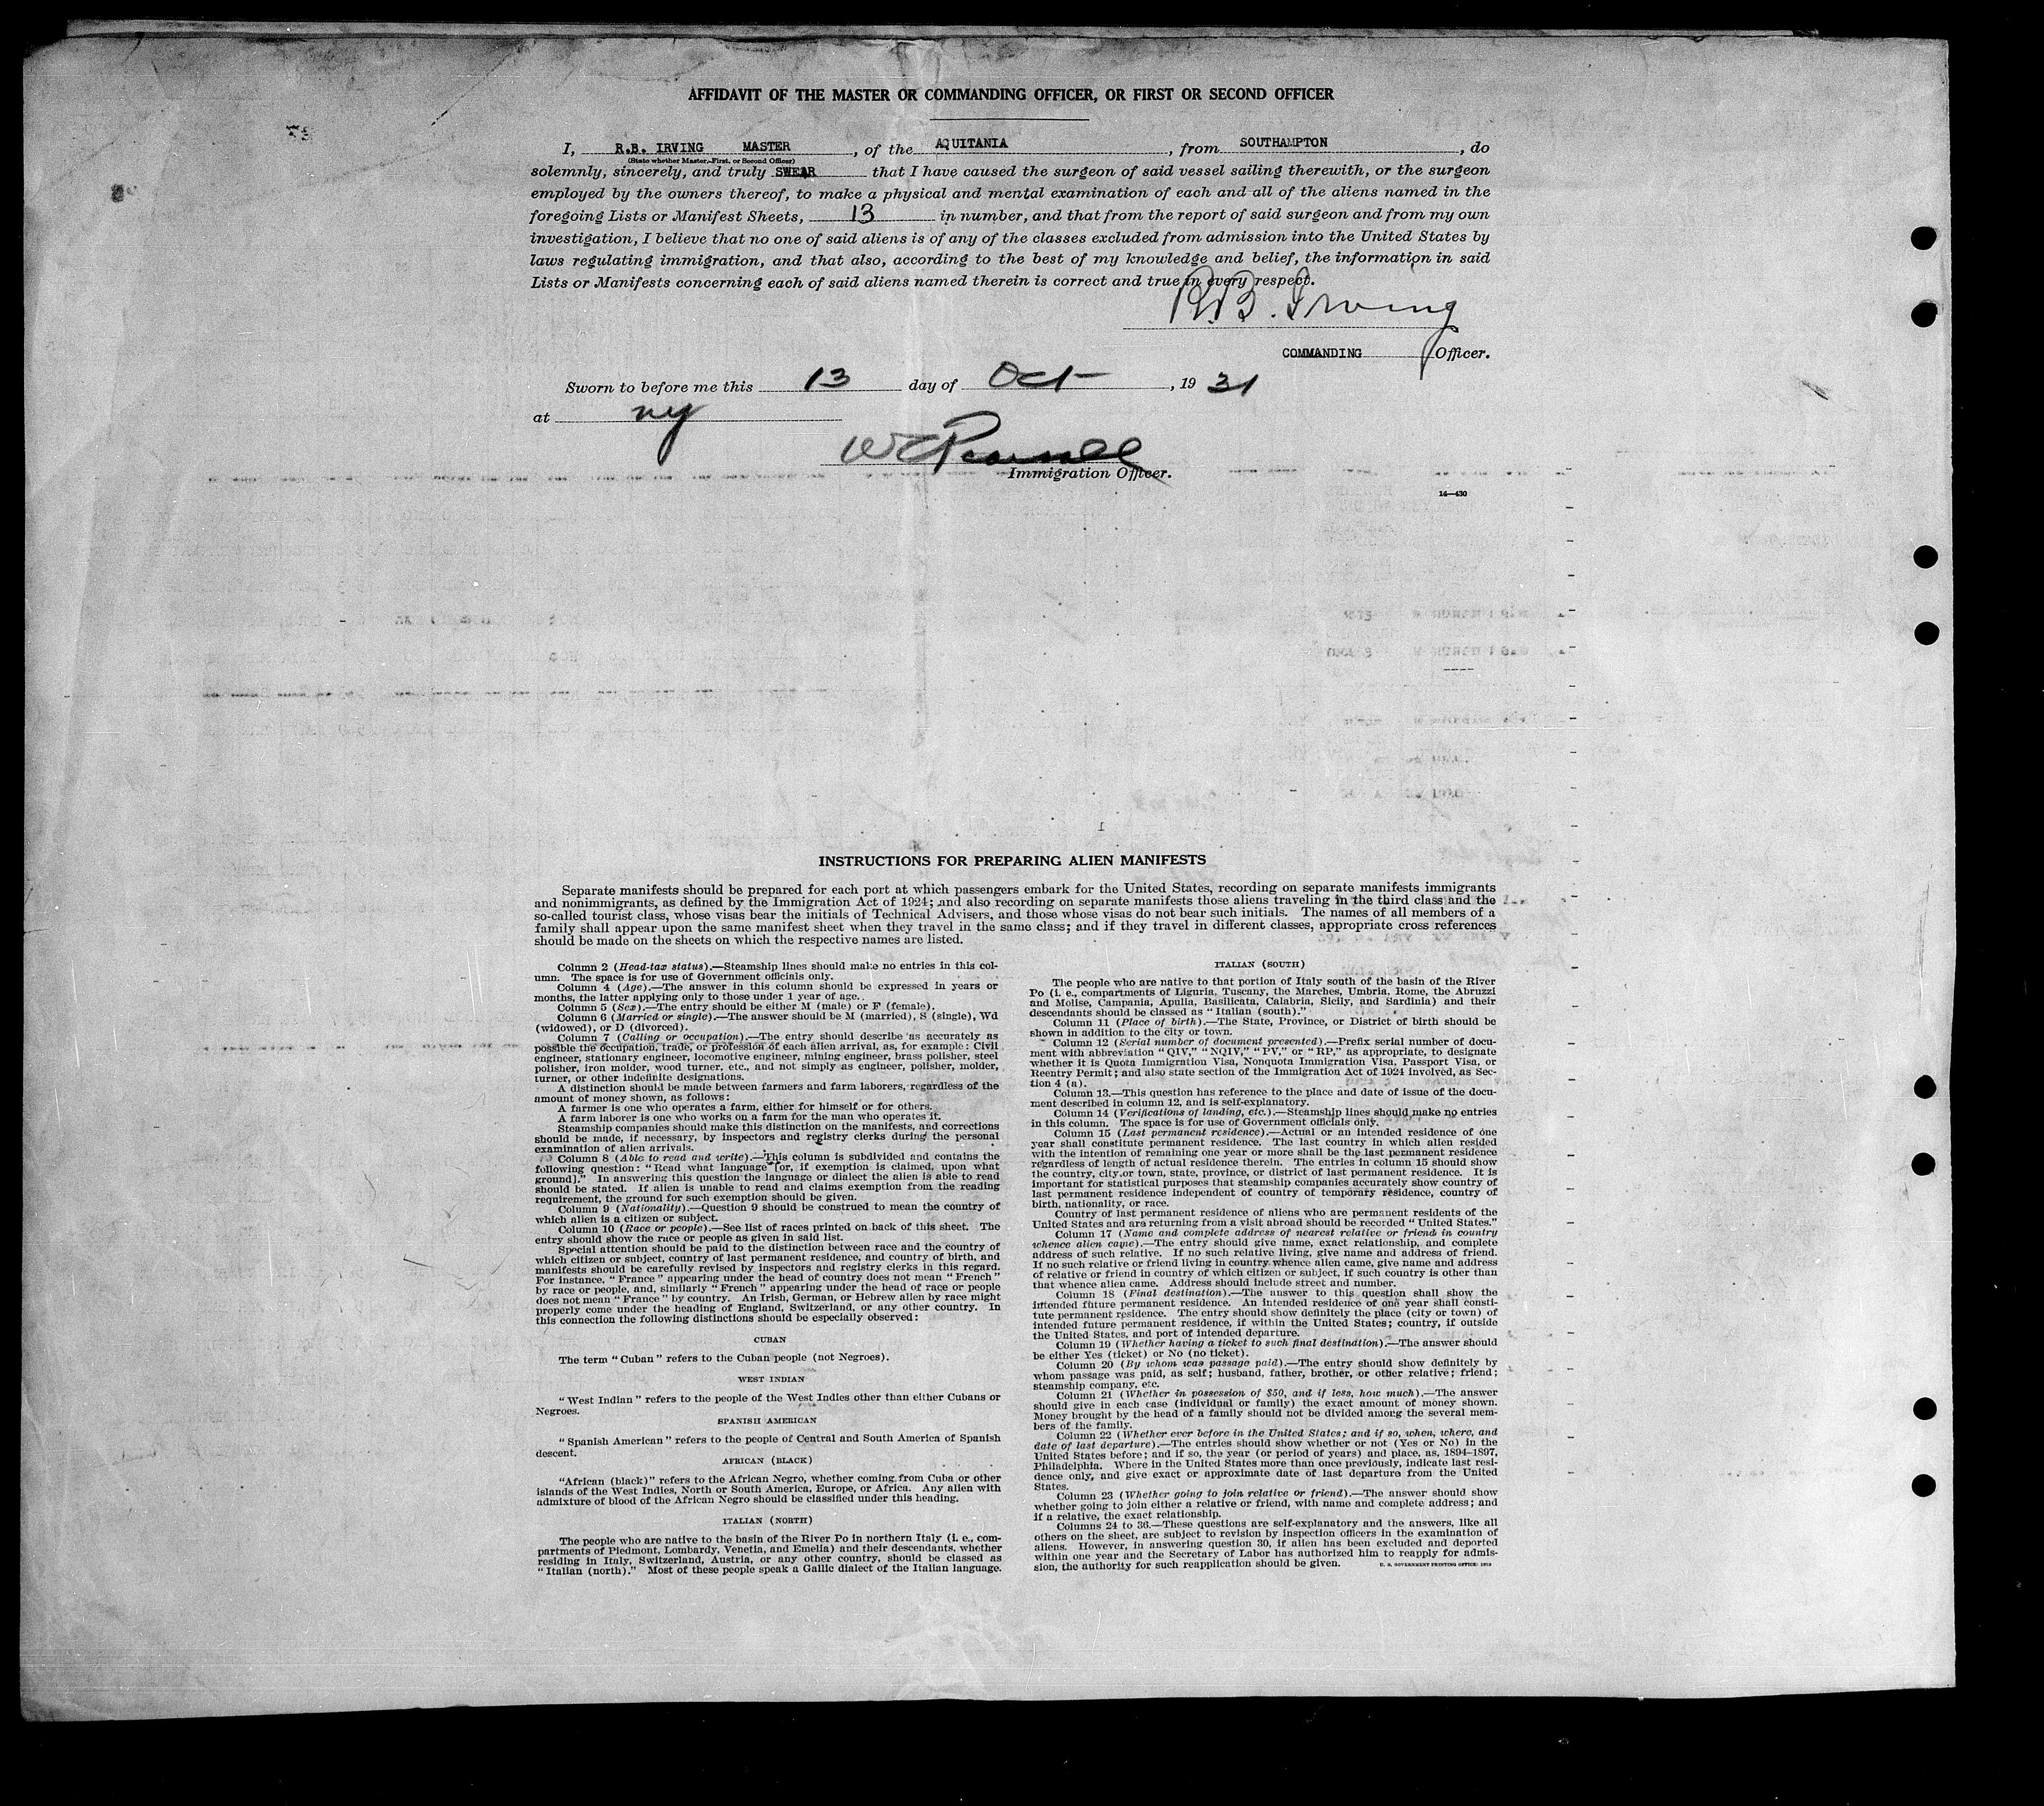 AFFIDAVIT OF THE MASTER OR COMMANDING OFFICER, OR FIRST OR SECOND OFFICER
I, R.B. IRVING MASTER, of the AQUITANIA, from SOUTHAMPTON, do
(State whether Master, First, or Second Officer)
solemnly, sincerely, and truly SWEAR that I have caused the surgeon of said vessel sailing therewith, or the surgeon
employed by the owners thereof, to make a physical and mental examination of each and all of the aliens named in the
foregoing Lists or Manifest Sheets, 13 in number, and that from the report of said surgeon and from my own
investigation, I believe that no one of said aliens is of any of the classes excluded from admission into the United States by
laws regulating immigration, and that also, according to the best of my knowledge and belief, the information in said
Lists or Manifests concerning each of said aliens named therein is correct and true in every respect.
R.B. Irving
COMMANDING Officer.
Sworn to before me this 13 day of Oct, 1931
at ny
Immigration Officer.
14—430
INSTRUCTIONS FOR PREPARING ALIEN MANIFESTS
Separate manifests should be prepared for each port at which passengers embark for the United States, recording on separate manifests immigrants
and nonimmigrants, as defined by the Immigration Act of 1924; and also recording on separate manifests those aliens traveling in the third class and the
so-called tourist class, whose visas bear the initials of Technical Advisers, and those whose visas do not bear such initials. The names of all members of a
family shall appear upon the same manifest sheet when they travel in the same class; and if they travel in different classes, appropriate cross references
should be made on the sheets on which the respective names are listed.
Column 2 (Head-tax status).—Steamship lines should make no entries in this col-
umn. The space is for use of Government officials only.
Column 4 (Age).—The answer in this column should be expressed in years or
months, the latter applying only to those under 1 year of age.
Column 5 (Sex).—The entry should be either M (male) or F (female).
Column 6 (Married or single).—The answer should be M (married), S (single), Wd
(widowed), or D (divorced).
Column 7 (Calling or occupation).—The entry should describe as accurately as
possible the occupation, trade, or profession of each alien arrival, as, for example: Civil
engineer, stationary engineer, locomotive engineer, mining engineer, brass polisher, steel
polisher, iron molder, wood turner, etc., and not simply as engineer, polisher, molder,
turner, or other indefinite designations.
A distinction should be made between farmers and farm laborers, regardless of the
amount of money shown, as follows:
A farmer is one who operates a farm, either for himself or for others.
A farm laborer is one who works on a farm for the man who operates it.
Steamship companies should make this distinction on the manifests, and corrections
should be made, if necessary, by inspectors and registry clerks during the personal
examination of alien arrivals.
Column 8 (Able to read and write).—This column is subdivided and contains the
following question: "Read what language [or, if exemption is claimed, upon what
ground]." In answering this question the language or dialect the alien is able to read
should be stated. If alien is unable to read and claims exemption from the reading
requirement, the ground for such exemption should be given.
Column 9 (Nationality).—Question 9 should be construed to mean the country of
which alien is a citizen or subject.
Column 10 (Race or people).—See list of races printed on back of this sheet. The
entry should show the race or people as given in said list.
Special attention should be paid to the distinction between race and the country of
which citizen or subject, country of last permanent residence, and country of birth, and
manifests should be carefully revised by inspectors and registry clerks in this regard.
For instance, "France" appearing under the head of country does not mean "French"
by race or people, and, similarly "French" appearing under the head of race or people
does not mean "France" by country. An Irish, German, or Hebrew alien by race might
properly come under the heading of England, Switzerland, or any other country. In
this connection the following distinctions should be especially observed:
CUBAN
The term "Cuban" refers to the Cuban people (not Negroes).
WEST INDIAN
"West Indian" refers to the people of the West Indies other than either Cubans or
Negroes.
SPANISH AMERICAN
"Spanish American" refers to the people of Central and South America of Spanish
descent.
AFRICAN (BLACK)
"African (black)" refers to the African Negro, whether coming from Cuba or other
islands of the West Indies, North or South America, Europe, or Africa. Any alien with
admixture of blood of the African Negro should be classified under this heading.
ITALIAN (NORTH)
The people who are native to the basin of the River Po in northern Italy (i. e., com-
partments of Piedmont, Lombardy, Venetia, and Emelia) and their descendants, whether
residing in Italy, Switzerland, Austria, or any other country, should be classed as
"Italian (north)." Most of these people speak a Gallic dialect of the Italian language.
ITALIAN (SOUTH)
The people who are native to that portion of Italy south of the basin of the River
Po (i. e., compartments of Liguria, Tuscany, the Marches, Umbria, Rome, the Abruzzi
and Molise, Campania, Apulia, Basilicata, Calabria, Sicily, and Sardinia) and their
descendants should be classed as "Italian (south)."
Column 11 (Place of birth).—The State, Province, or District of birth should be
shown in addition to the city or town.
Column 12 (Serial number of document presented).—Prefix serial number of docu-
ment with abbreviation "QIV," "NQIV," "PV," or "RP," as appropriate, to designate
whether it is Quota Immigration Visa, Nonquota Immigration Visa, Passport Visa, or
Reentry Permit; and also state section of the Immigration Act of 1924 involved, as Sec-
tion 4 (a).
Column 13.—This question has reference to the place and date of issue of the docu-
ment described in column 12, and is self-explanatory.
Column 14 (Verifications of landing, etc.).—Steamship lines should make no entries
in this column. The space is for use of Government officials only.
Column 15 (Last permanent residence).—Actual or an intended residence of one
year shall constitute permanent residence. The last country in which alien resided
with the intention of remaining one year or more shall be the last permanent residence
regardless of length of actual residence therein. The entries in column 15 should show
the country, city or town, state, province, or district of last permanent residence. It is
important for statistical purposes that steamship companies accurately show country of
last permanent residence independent of country of temporary residence, country of
birth, nationality, or race.
Country of last permanent residence of aliens who are permanent residents of the
United States and are returning from a visit abroad should be recorded "United States."
Column 17 (Name and complete address of nearest relative or friend in country
whence alien came).—The entry should give name, exact relationship, and complete
address of such relative. If no such relative living, give name and address of friend.
If no such relative or friend living in country whence alien came, give name and address
of relative or friend in country of which citizen or subject, if such country is other than
that whence alien came. Address should include street and number.
Column 18 (Final destination).—The answer to this question shall show the
intended future permanent residence. An intended residence of one year shall consti-
tute permanent residence. The entry should show definitely the place (city or town) of
intended future permanent residence, if within the United States; country, if outside
the United States, and port of intended departure.
Column 19 (Whether having a ticket to such final destination).—The answer should
be either Yes (ticket) or No (no ticket).
Column 20 (By whom was passage paid).—The entry should show definitely by
whom passage was paid, as self; husband, father, brother, or other relative; friend;
steamship company, etc.
Column 21 (Whether in possession of $50, and if less, how much).—The answer
should give in each case (individual or family) the exact amount of money shown.
Money brought by the head of a family should not be divided among the several mem-
bers of the family.
Column 22 (Whether ever before in the United States; and if so, when, where, and
date of last departure).—The entries should show whether or not (Yes or No) in the
United States before; and if so, the year (or period of years) and place, as, 1894–1897,
Philadelphia. Where in the United States more than once previously, indicate last resi-
dence only, and give exact or approximate date of last departure from the United
States.
Column 23 (Whether going to join relative or friend).—The answer should show
whether going to join either a relative or friend, with name and complete address; and
if a relative, the exact relationship.
Columns 24 to 36.—These questions are self-explanatory and the answers, like all
others on the sheet, are subject to revision by inspection officers in the examination of
aliens. However, in answering question 30, if alien has been excluded and deported
within one year and the Secretary of Labor has authorized him to reapply for admis-
sion, the authority for such reapplication should be given.
U. S. GOVERNMENT PRINTING OFFICE